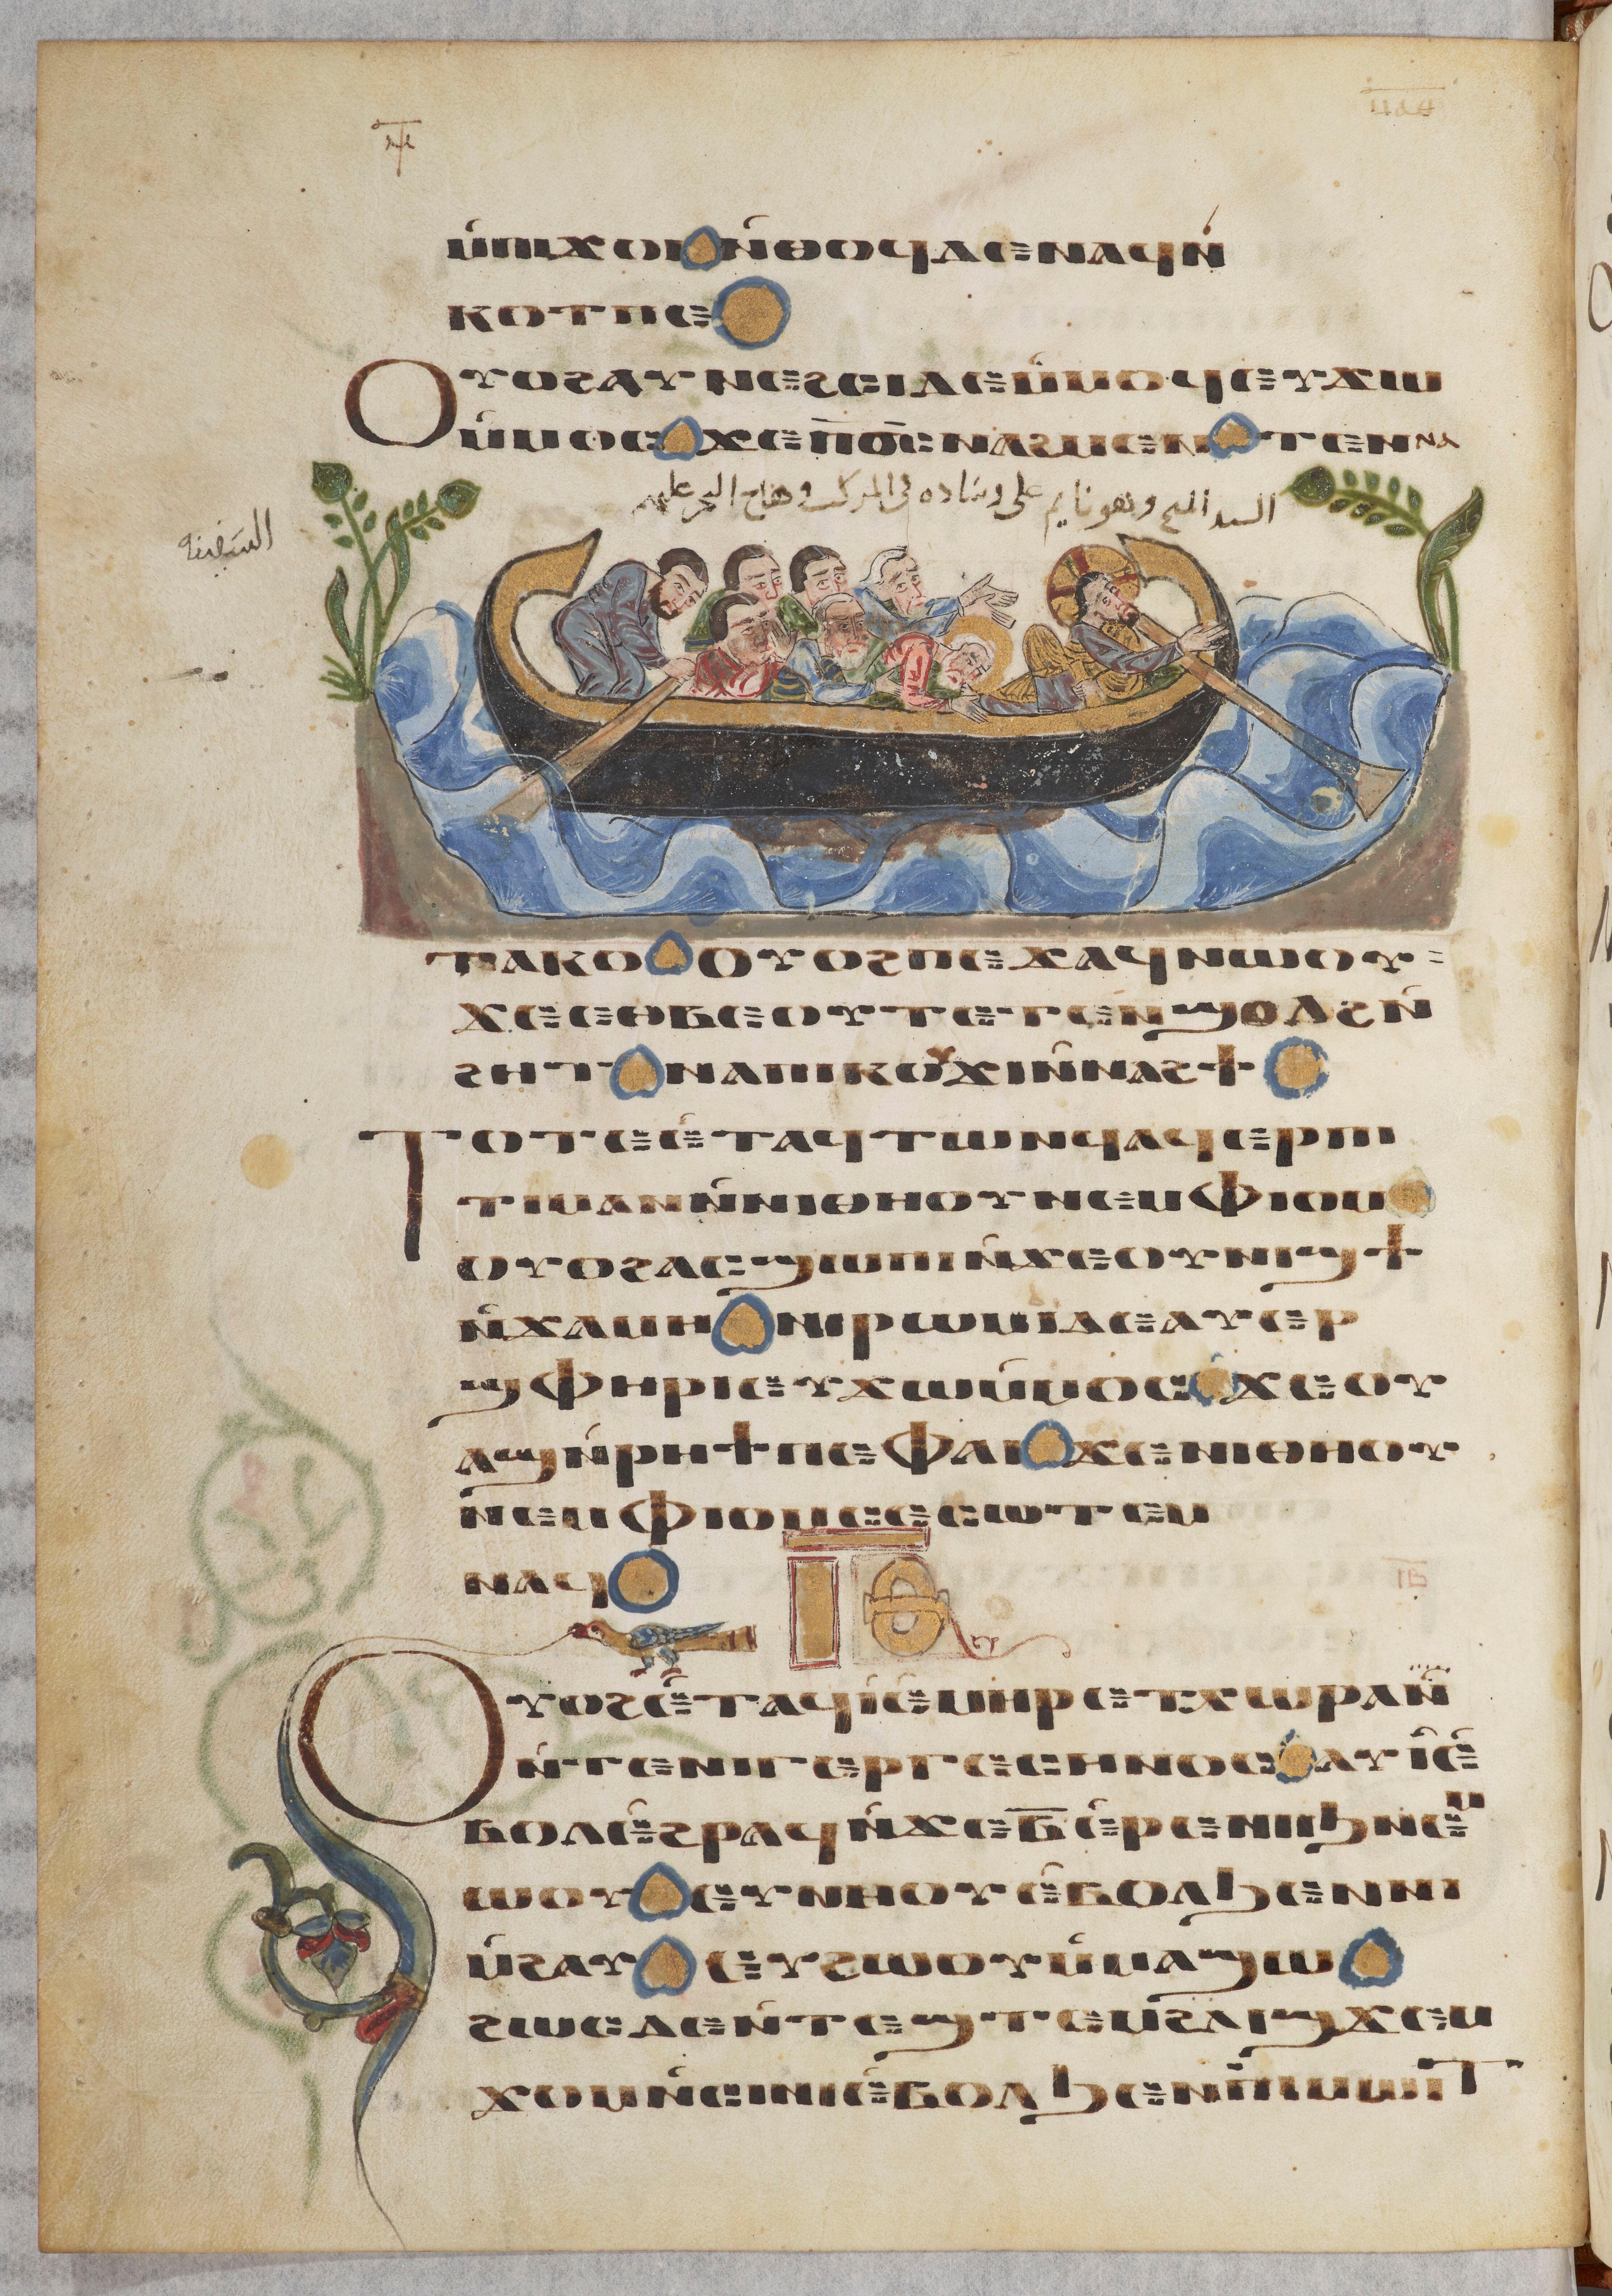 ⲙ̀ⲡⲓϫⲟⲓ ⲛ̀ⲑⲟϥ ⲇⲉ ⲛⲁϥⲛ̀
ⲕⲟⲧ ⲡⲉ
Ⲟⲩⲟϩ ⲁⲩⲛⲉϩⲥⲓ ⲇⲉ ⲙ̀ⲙⲟϥ ⲉⲩϫⲱ
ⲙ̀ⲙⲟⲥ ϫⲉ ⲡ̅ⲟ̅ⲥ̅ ⲛⲁϩⲙⲉⲛ ⲧⲉⲛⲛⲁ
السيد المسيح وهو نايم على وساده في المركب وهاج البحر عليهم
السفينه
ⲧⲁⲕⲟ Ⲟⲩⲟϩ ⲡⲉϫⲁϥ ⲛⲱⲟⲩ
ϫⲉ ⲉⲑⲃⲉ ⲟⲩ ⲧⲉⲧⲉⲛϣⲟⲗϩ ⲛ̀
ϩⲏⲧ ⲛⲁ ⲡⲓⲕⲟⲩϫⲓ ⲛ̀ⲛⲁϩϯ
Ⲧⲟⲧⲉ ⲉ̀ⲧⲁϥⲧⲱⲛϥ ⲁϥⲉⲣⲉⲡⲓ
ⲧⲓⲙⲁⲛ ⲛ̀ⲛⲓⲑⲏⲟⲩ ⲛⲉⲙ ⲫⲓⲟⲙ
ⲟⲩⲟϩ ⲁⲥϣⲱⲡⲓ ⲛ̀ϫⲉ ⲟⲩⲛⲓϣϯ
ⲛ̀ϫⲁⲙⲏ ⲛⲓⲣⲱⲙⲓ ⲇⲉ ⲁⲩⲉⲣ
ϣⲫⲏⲣⲓ ⲉⲩϫⲱ ⲙ̀ⲙⲟⲥ ϫⲉ ⲟⲩ
ⲁϣ ⲛ̀ⲣⲏϯ ⲡⲉ ⲫⲁⲓ ϫⲉ ⲛⲓⲑⲏⲟⲩ
ⲛⲉⲙ ⲫⲓⲟⲙ ⲥⲉⲥⲱⲧⲉⲙ
ⲛⲁϥ
ⲓ̅ⲃ̅
Ⲟⲩⲟϩ ⲉ̀ⲧⲁϥⲓ̀ ⲉ̀ⲙⲏⲣ ⲉⲧⲭⲱⲣⲁ ⲛ̀
ⲛ̀ⲧⲉ ⲛⲓⲅⲉⲣⲅⲉⲥⲏⲛⲟⲥ ⲁⲩⲓ̀ ⲉ̀
ⲃⲟⲗ ⲉ̀ϩⲣⲁϥ ⲛ̀ϫⲉ ⲃ̅ ⲉ̀ⲣⲉ ⲛⲓⲓϧ ⲛⲉⲙ
ⲱⲟⲩ ⲉⲩⲛⲏⲟⲩ ⲉ̀ⲃⲟⲗ ϧⲉⲛ ⲛⲓ
ⲙ̀ϩⲁⲩ ⲉⲩϩⲱⲟⲩ ⲙ̀ⲙⲁϣⲱ
ϩⲱⲥⲇⲉ ⲛ̀ⲧⲉϣⲧⲉⲙ ϩⲗⲓ ϣϫⲉⲙ
ϫⲟⲙ ⲛ̀ⲥⲓⲛⲓ ⲉ̀ⲃⲟⲗ ϧⲉⲛ ⲡⲓⲙⲱⲓⲧ